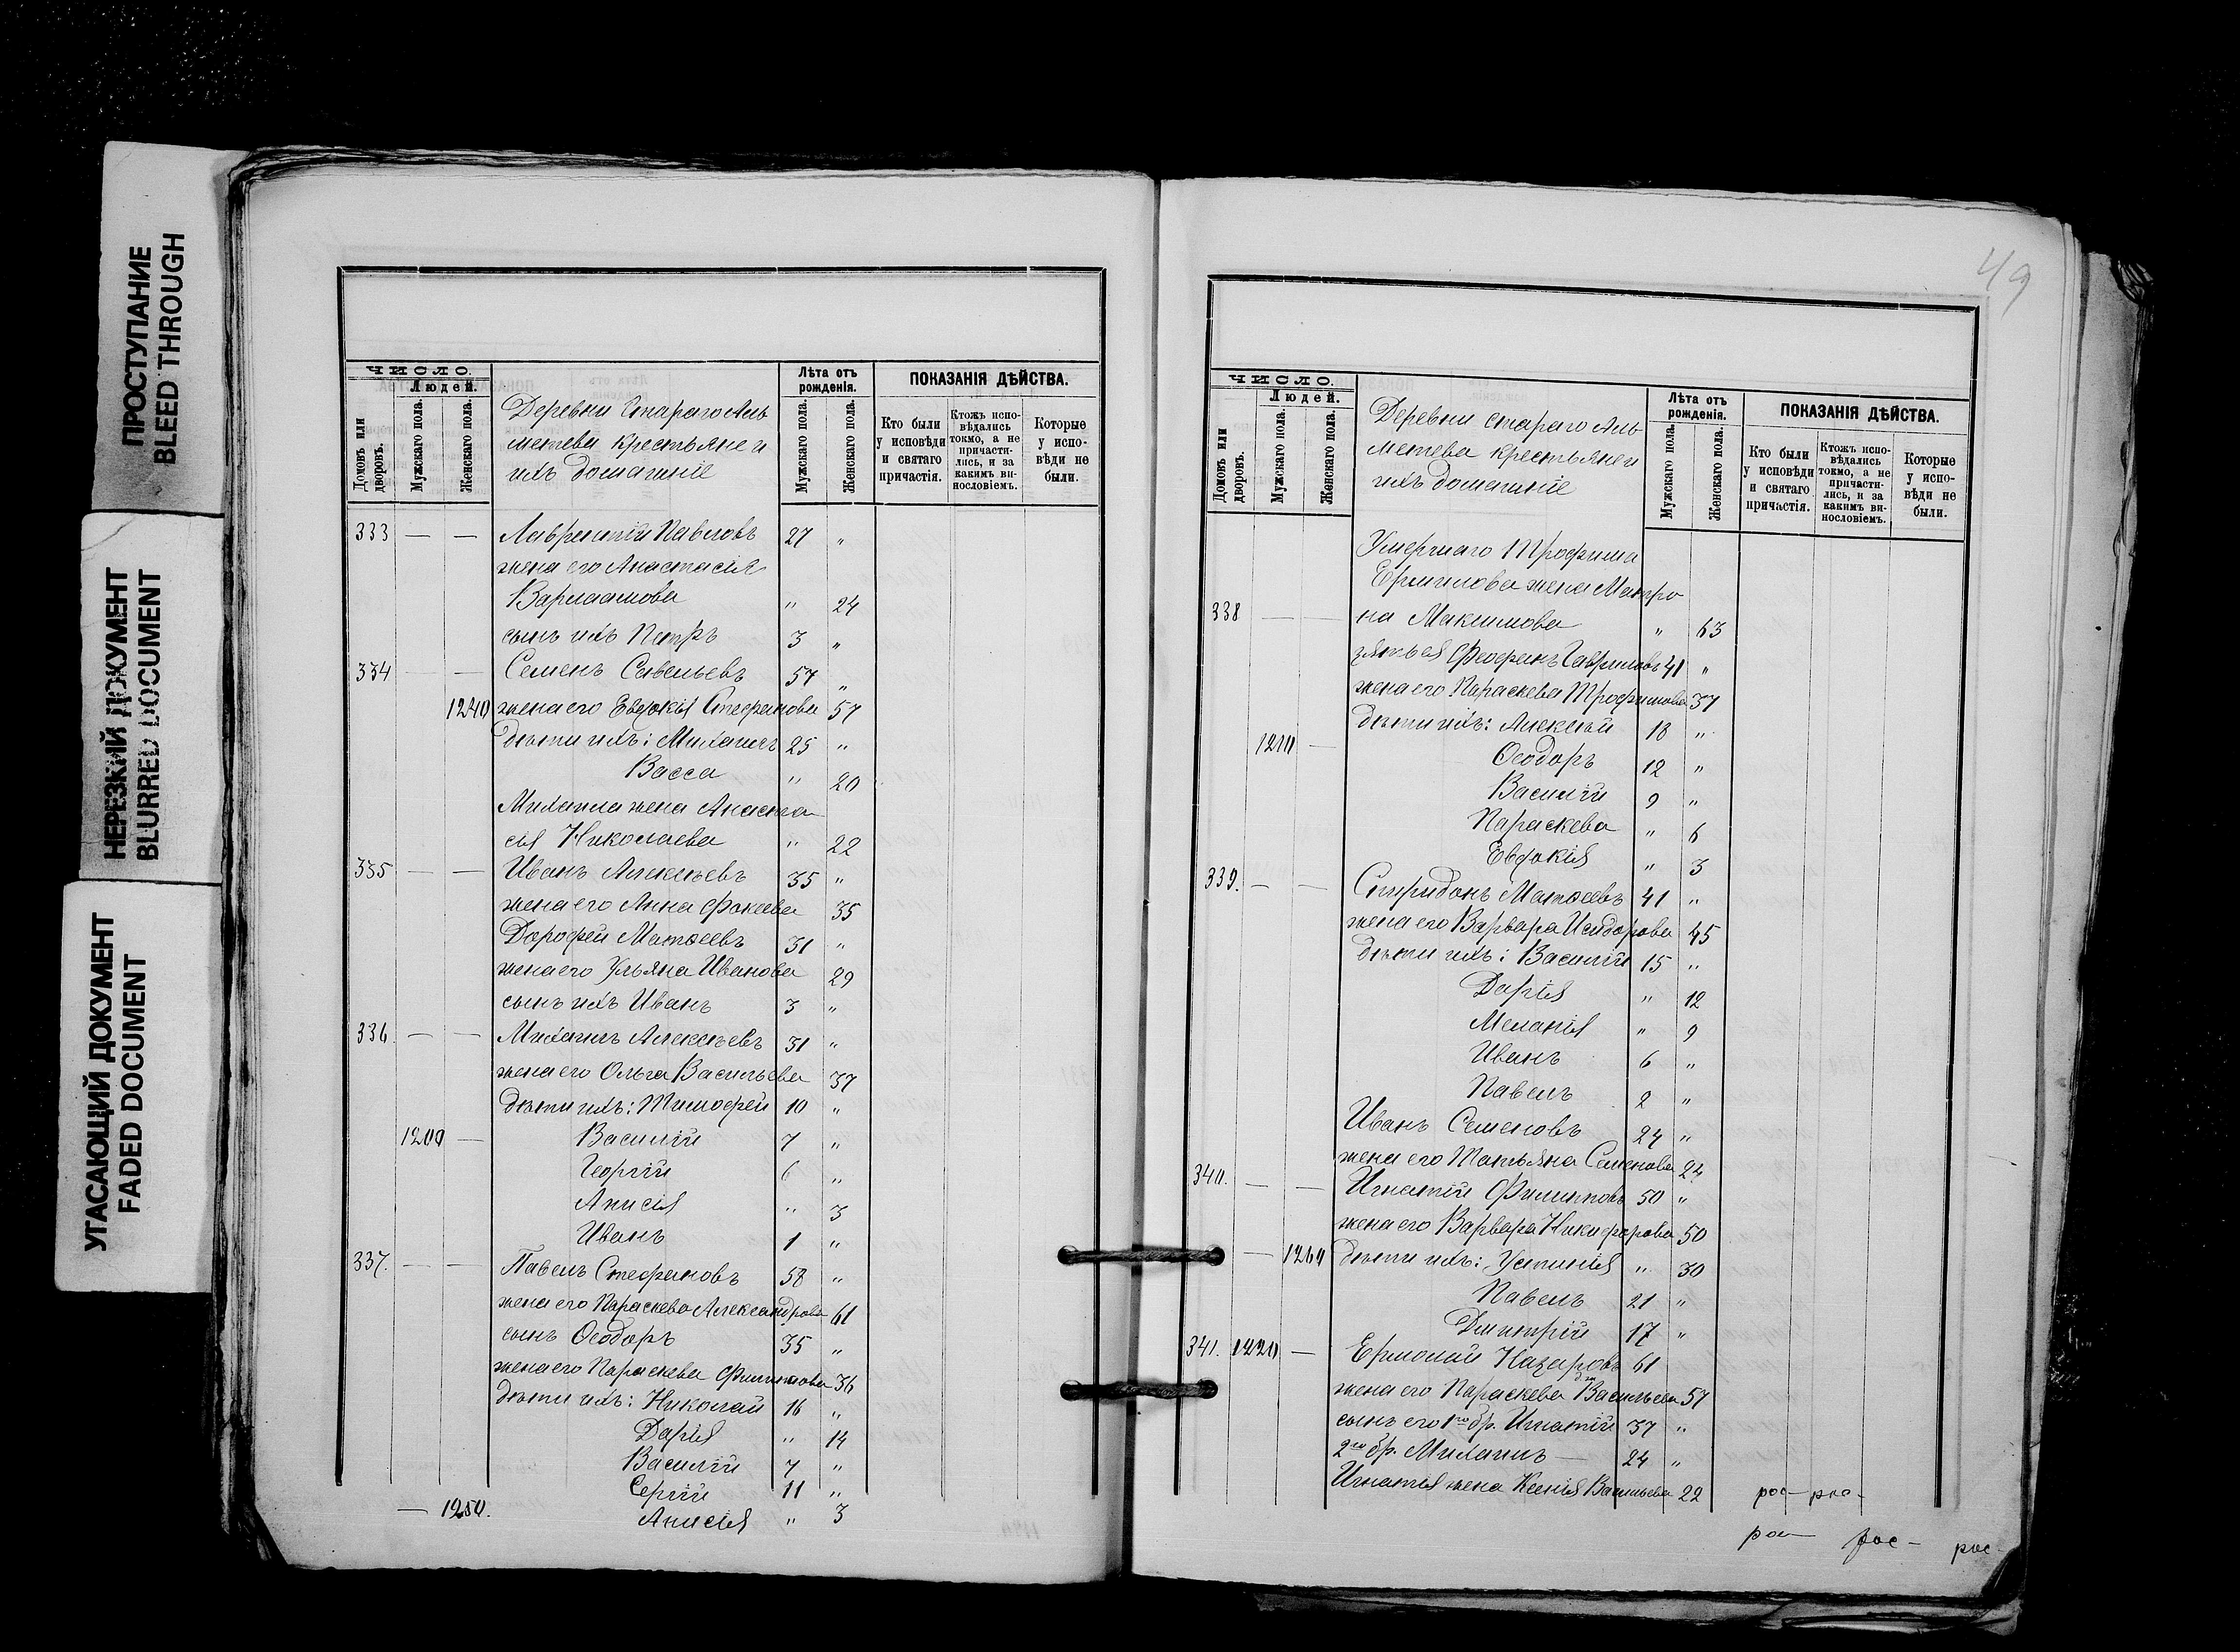 ПРОСТУПАНИЕ
BLEED THROUGH
НЕРЕЗКИЙ ДОКУМЕНТ
BLURRED DOCUMENT
УГАСАЮЩИЙ ДОКУМЕНТ
FADED DOCUMENT
ЧИСЛО.
Людей.
Домовъ или дворовъ.
Мужскаго пола.
Женскаго пола.
Деревни Стараго Аль
метева крестьяне и
ихъ домашніе
Лѣта отъ рожденія.
Мужскаго пола.
Женскаго пола.
ПОКАЗАНІЯ ДѢЙСТВА.
Кто были у исповѣди и святаго причастія.
Ктожъ испо-вѣдались токмо, а не причасти-лись, и за какимъ ви-нословіемъ.
Которые у испо-вѣди не были.
333 — — Лаврентій Павловъ 27 "
жена его Анастасія
Варлаамова " 24
сынъ ихъ Петръ 3 "
334 — — Семенъ Савельевъ 57 "
1240 жена его Евдокія Стефанова 57
дѣти ихъ: Михаилъ 25 "
Васса " 20
Михаила жена Анаста
сія Николаева " 22
335 — — Иванъ Алексѣевъ 35 "
жена его Анна Фокеева 35
Дорофей Матѳеевъ 31 "
жена его Ульяна Иванова 29
сынъ ихъ Иванъ 3 "
336. — — Михаилъ Алексѣевъ 31 "
жена его Ольга Васильева 37
дѣти ихъ: Тимофей 10 "
1200 — Василій 7 "
Георгій 6 "
Анисія " 3
Иванъ 1 "
337. — — Павелъ Стефановъ 58 "
жена его Параскева Александрова 61
сынъ Ѳеодоръ 35 "
жена его Параскева Филиппова 36
дѣти ихъ: Николай 16 "
Дарія " 14
Василій 7 "
Сергій 11 "
— 1250. Анисія " 3
49
ЧИСЛО.
Людей.
Домовъ или дворовъ.
Мужскаго пола.
Женскаго пола.
Деревни стараго Аль
метева крестьяне и
ихъ домашніе
Лѣта отъ рожденія.
Мужскаго пола.
Женскаго пола.
ПОКАЗАНІЯ ДѢЙСТВА.
Кто были у исповѣди и святаго причастія.
Ктожъ испо-вѣдались токмо, а не причасти-лись, и за какимъ ви-нословіемъ.
Которые у испо-вѣди не были.
Умершаго Трофима
Ермилова жена Матро
338 — — на Максимова " 63
зятья Феофанъ Гавриловъ 41 "
жена его Параскева Трофимова 37
дѣти ихъ: Алексѣй 18 "
1210 — Ѳеодоръ 12 "
Василій 9 "
Параскева " 6
Евдокія " 3
339. — — Спиридонъ Матѳеевъ 41 "
жена его Варвара Исидорова 45
дѣти ихъ: Василій 15 "
Дарія " 12
Меланія " 9
Иванъ 6 "
Павелъ 2 "
Иванъ Семеновъ 24 "
жена его Татьяна Семенова 24
340. — — Игнатій Филипповъ 50 "
жена его Варвара Никифорова 50
— 1260 дѣти ихъ: Устинія " 30
Павелъ 21 "
Димитрій 17 "
341. 1220 — Ермолай Назаровъ 61
жена его Параскева Васильева 57
сынъ его 1го бр. Игнатій 37 "
2го бр. Михаилъ — 24 "
Игнатія жена Ксенія Васильева 22